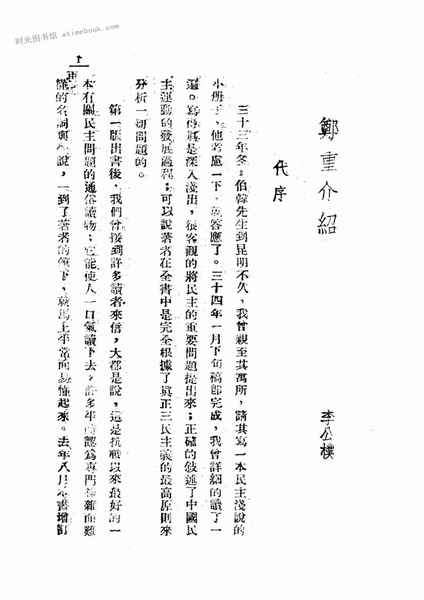 时光图书馆 atimebook.com
鄭重介紹
代序
李公樸
三十三年冬，伯韓先生到昆明不久，我曾親至其寓所，請其寫一本民主淺說的
小册子，他考慮一下，就答應了。三十四年一月下旬稿卽完成，我曾詳細的讀了一
遍。寫得眞是深入淺出，很客觀的將民主的重要問題提出來；正確的敍述了中國民
主運動的發展過程；可以說著者在全書中是完全根據了眞正三民主義的最高原則來
分析一切問題的。
第一版出書後，我們曾接到許多讀者來信，大都是說，這是抗戰以來最好的一
本有關民主問題的通俗讀物；它能使人一口氣讀下去，許多平時認爲專門 雜而難
懂的名詞與 說，一到了著者的筆下，就馬上平常而易懂起來。去年八月本書增訂